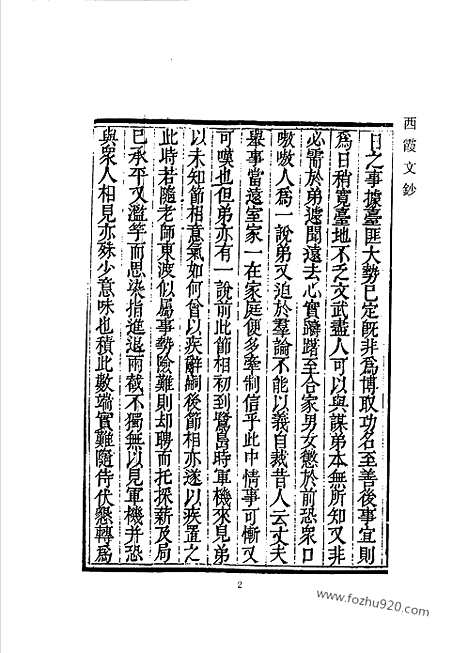 西霞文鈔
日之事據臺匪大勢已定旣非爲博取功名至善後事宜則
爲日稍寬臺地不乏文武盡人可以與謀弟本無所知又非
必需於弟遽聞遠去心實躊躇至合家男女懲於前恐衆口
嗷嗷人爲一說弟又迫於羣論不能以義自裁昔人云丈夫
舉事當遠室家一在家庭便多牽制信乎此中情事可慚又
可嘆也但弟亦有一說前此節相初到鷺島時軍機來見弟
以未知節相意氣如何曾以疾辭嗣後節相亦遂以疾置之
此時若隨老師東渡似屬事勢險難則却聘而托採薪及局
已承平又濫竽而思染指進退兩截不獨無以見軍機并恐
與衆人相見亦殊少意味也積此數端實難隨侍伏懇轉爲
2
www.fozhu920.com